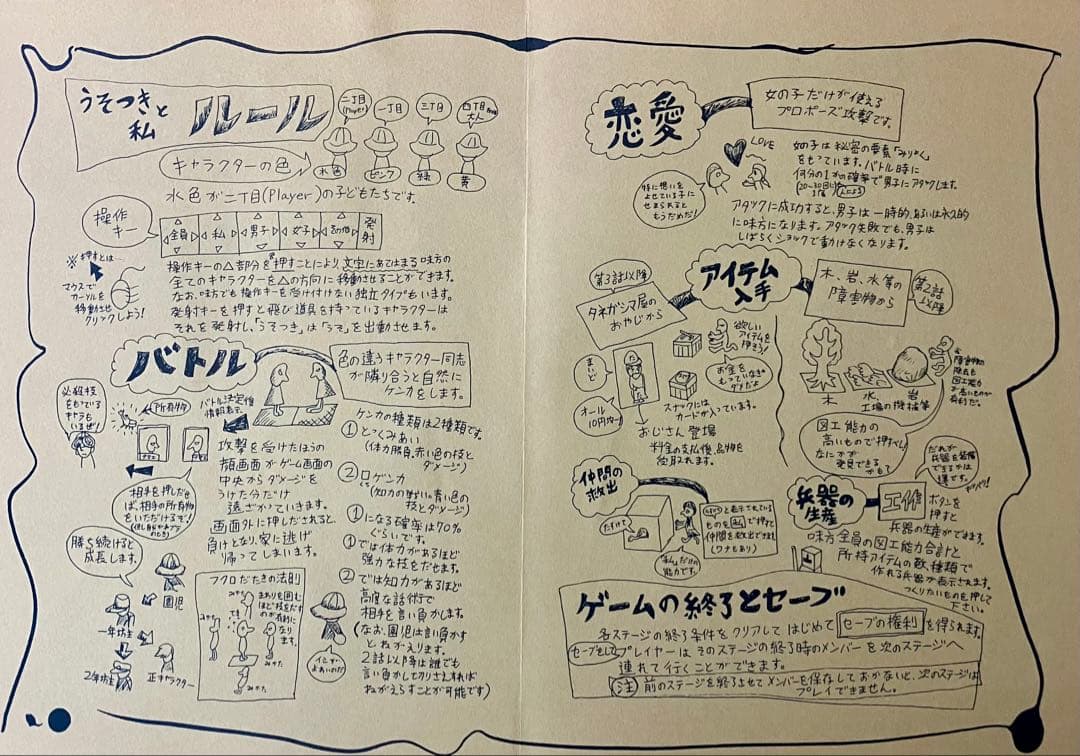 うそつきと私
ルール
二丁目(Player)
一丁目
三丁目
四丁目
大人
キャラクターの色
水色
ピンク
緑
黄
水色が二丁目(Player)の子どもたちです。
操作キー
全員
私
男子
女子
発射
※押すとは…
マウスで
カーソルを
移動させ
クリックしよう!
操作キーの△部分を押すことにより、文字にあてはまる味方の
全てのキャラクターを△の方向に移動させることができます。
なお、味方でも操作キーを受け付けない独立タイプもいます。
発射キーを押すと飛び道具を持っているキャラクターは
それを発射し、「うそつき」は「うそ」を出動させます。
バトル
色の違うキャラクター同志
が隣り合うと自然に
ケンカをします。
必殺技
をもっている
キャラも
いるぜ!
所有物
バトル決定後
情報表示
攻撃を受けたほうの
顔画面がゲーム画面の
中央からダメージを
うけた分だけ
遠ざかっていきます。
画面外に押しだされると、
負けとなり、家に逃げ
帰ってしまいます。
相手を押しだせ
ば、相手の所有物
をいただけるぞ!
勝ち続けると
成長します。
園児
一年坊主
2年坊主
正キャラクター
フクロだたきの法則
まわりを囲む
ほど技をだす
のが有利に
なります。
みかた
みかた
てき
みかた
みかた
ケンカの種類は2種類です。
①とっくみあい
(体力勝負、赤い色の技と
ダメージ)
②口ゲンカ
(知力の戦い、青い色の
技とダメージ)
①になる確率は70%
ぐらいです。
①では体力があるほど
強力な技をだせます。
②では知力があるほど
高度な話術で
相手を言い負かします。
(なお、園児は言い負かす
とねがえります。
2話以降は誰でも
言い負かしてクリアすれば
ねがえらすことが可能です)
恋愛
女の子だけが使える
プロポーズ攻撃です。
LOVE
女の子は秘密の要素「みりょく」
をもっています。バトル時に
何分の1かの確率で男子にアタックします。
特に想いを
よせている子に
せまられると
もうだめだ!
アタックに成功すると、男子は一時的、あるいは永久的
に味方になります。アタック失敗でも、男子は
しばらくショックで動けなくなります。
アイテム入手
第3話以降
タネガシマ屋の
おやじから
木、岩、水等の
障害物から
第2話以降
まいど
オール
10円均一
欲しい
アイテムを
押そう!
お金を
もっていなきゃ
ダメだよ
スナックには
カードが入っています。
おじさん登場
料金の支払後、品物を
受取れます。
木
水
岩
工場の機械等
図工能力の
高いもので押すべし!
なにかが
発見できるかも?
仲間の救出
たすけて
と表示されている
ものを私で押すと
仲間を救出できます
(ワナもあり)
「私」だけの
能力です。
兵器の生産
だれが
兵器を装備
できるかは
運です。
工作
ボタンを
押すと
兵器の生産ができます。
味方全員の図工能力合計と
所持アイテムの数、種類で
作れる兵器が表示されます。
つくりたいものを押して
下さい。
ゲームの終了とセーブ
各ステージの終了条件をクリアしてはじめてセーブの権利を得られます。
セーブをしてプレイヤーはそのステージの終了時のメンバーを次のステージへ
連れて行くことができます。
注 前のステージを終了させてメンバーを保存しておかないと、次のステージは
プレイできません。